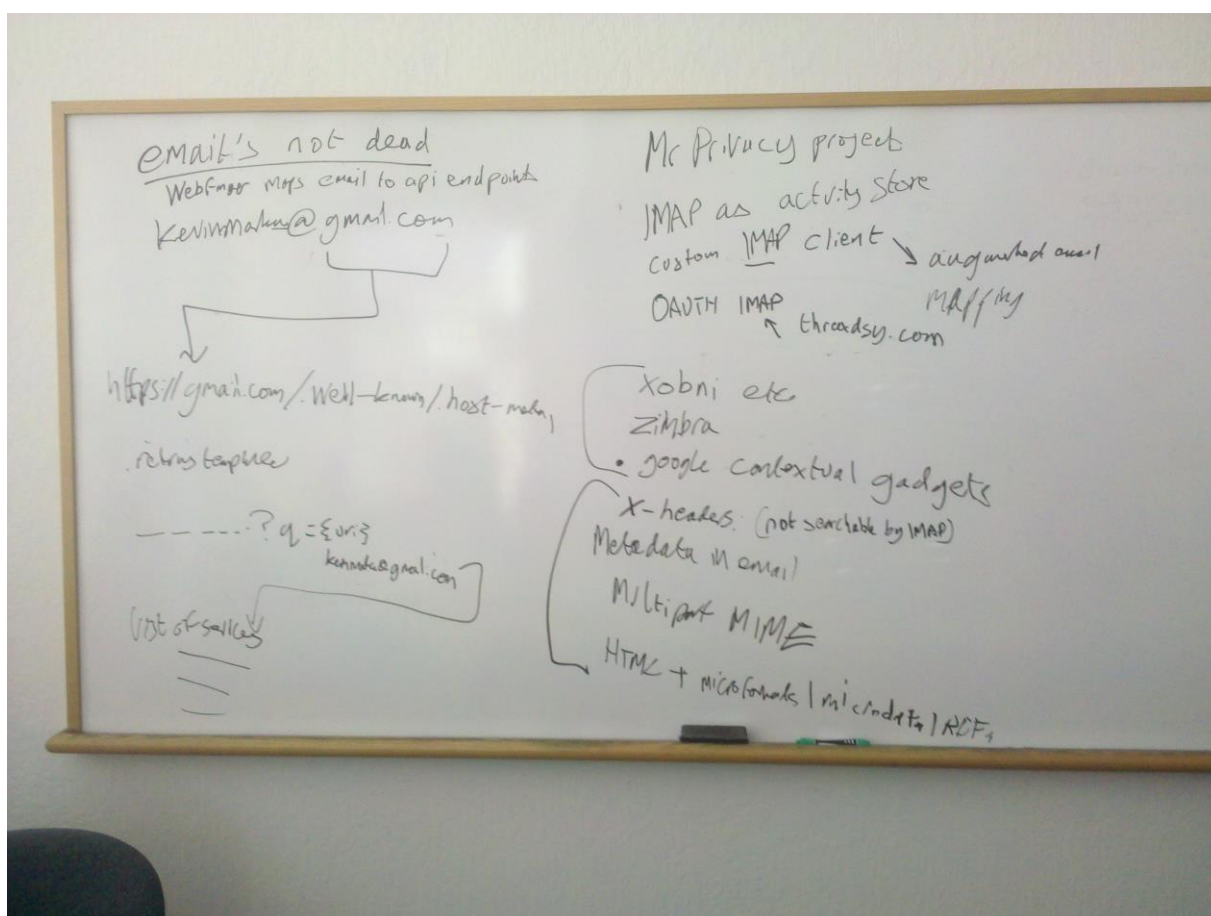 email's not dead
WebFinger maps email to api endpoints
kevinmarks@gmail.com
https://gmail.com/.well-known/.host-meta,
returns template
? q={uri}
kevinmarks@gmail.com
list of services
Mr Privacy project
IMAP as activity store
custom IMAP client
augmented email
mapping
OAUTH IMAP
threadsy.com
xobni etc
zimbra
• google contextual gadgets
X-headers. (not searchable by IMAP)
Metadata in email
Multipart MIME
HTML + microformats | microdata | RDFa